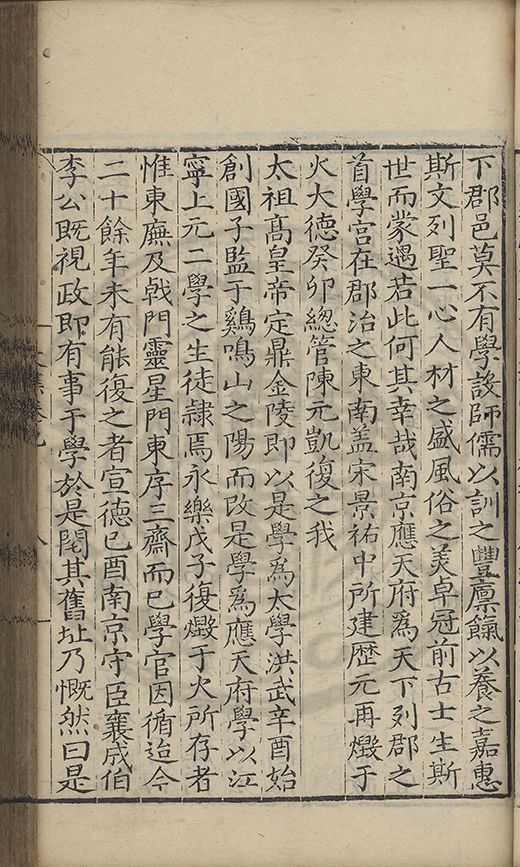 下郡邑莫不有學設師儒以訓之豐廩餼以養之嘉惠
斯文列聖一心人材之盛風俗之美卓冠前古士生斯
世而蒙遇若此何其幸哉南京應天府爲天下列郡之
首學宮在郡治之東南盖宋景祐中所建歷元再燬于
火大德癸卯緫管陳元凱復之我
太祖高皇帝定鼎金陵即以是學爲太學洪武辛酉始
創國子監于鷄鳴山之陽而改是學爲應天府學以江
寧上元二學之生徒隷焉永樂戊子復燬于火所存者
惟東廡及戟門靈星門東序三齋而已學官因循迨今
二十餘年未有能復之者宣德己酉南京守臣襄城伯
李公既視政即有事于學於是閱其舊址乃慨然曰是